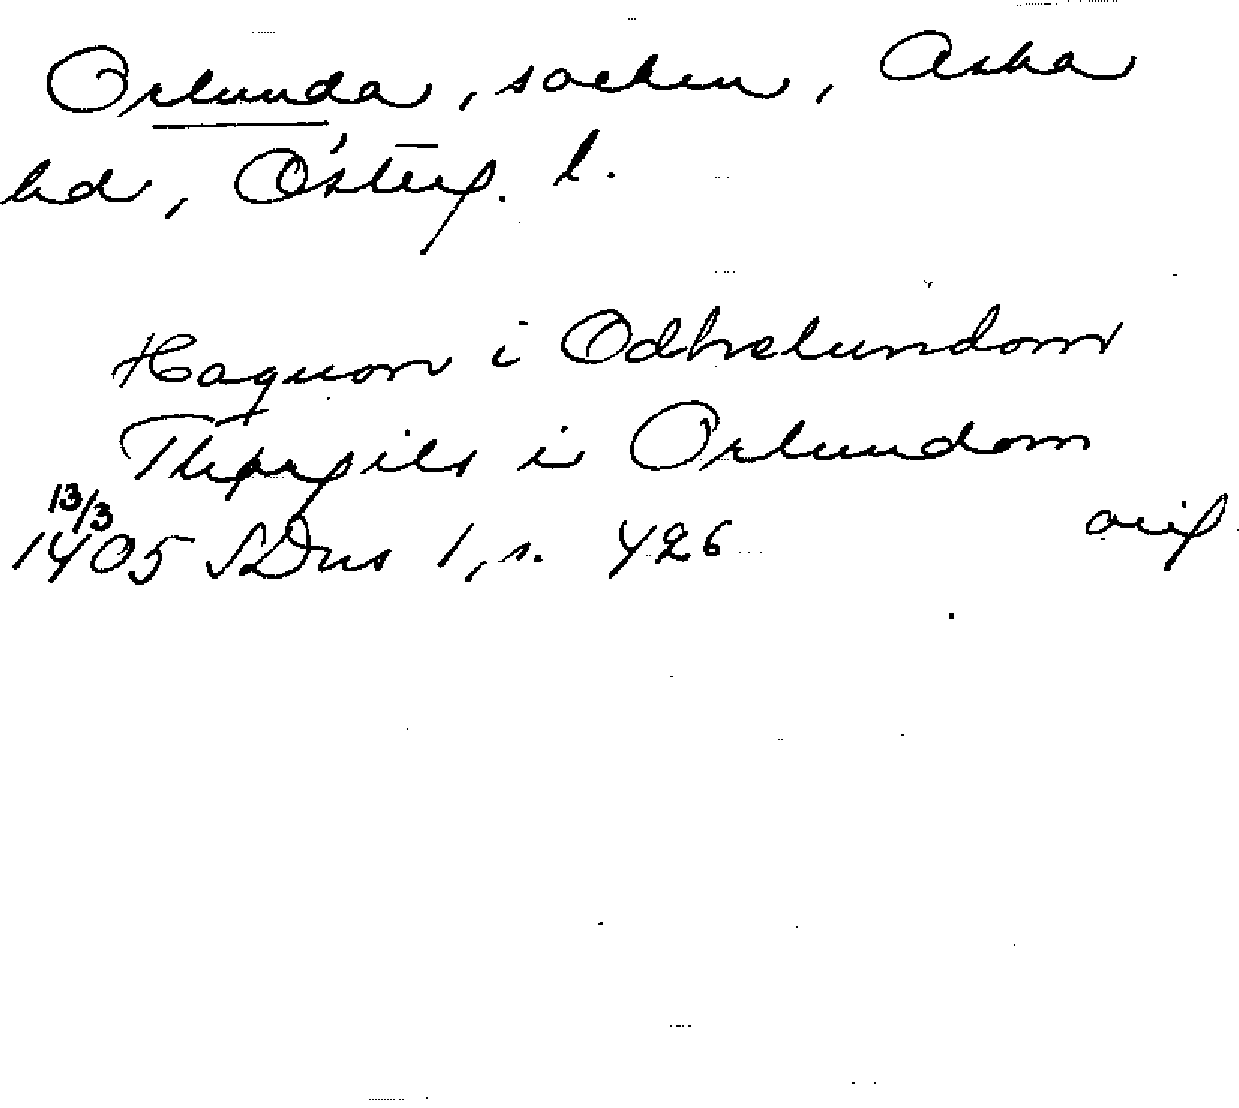 Orlunda, socken, Aska
hd, Österg. l.
Haquon i Odhrslundom
Thorgils i Orlundom
13/3
1405 SDns 1, s. 426 orig.